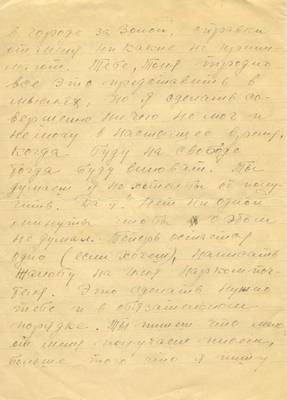 в городе за Зоной, справки
от меня никакие не прини-
мают. Тебе, Толя трудно
все это представить в
мыслях, но я сделать со-
вершенно ничего не мог и
не могу в настоящее время,
когда буду на свободе
тогда буду виноват. Ты
думаешь я не хотел бы от
Да я? Нет ни одной
минуты чтобы я о этом
не думал. Теперь остается
одно (если хочешь) написать
жалобу на имя нарком
Это сделать нужно
тебе и в обязательном
порядке. Ты пишешь что мало
от меня получаешь писем,
больше того что я пишу